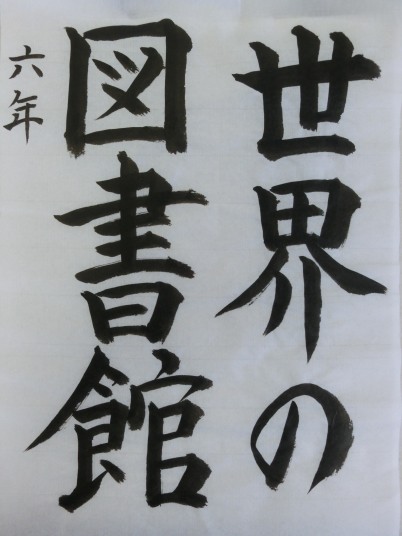 世界の
図書館
六年